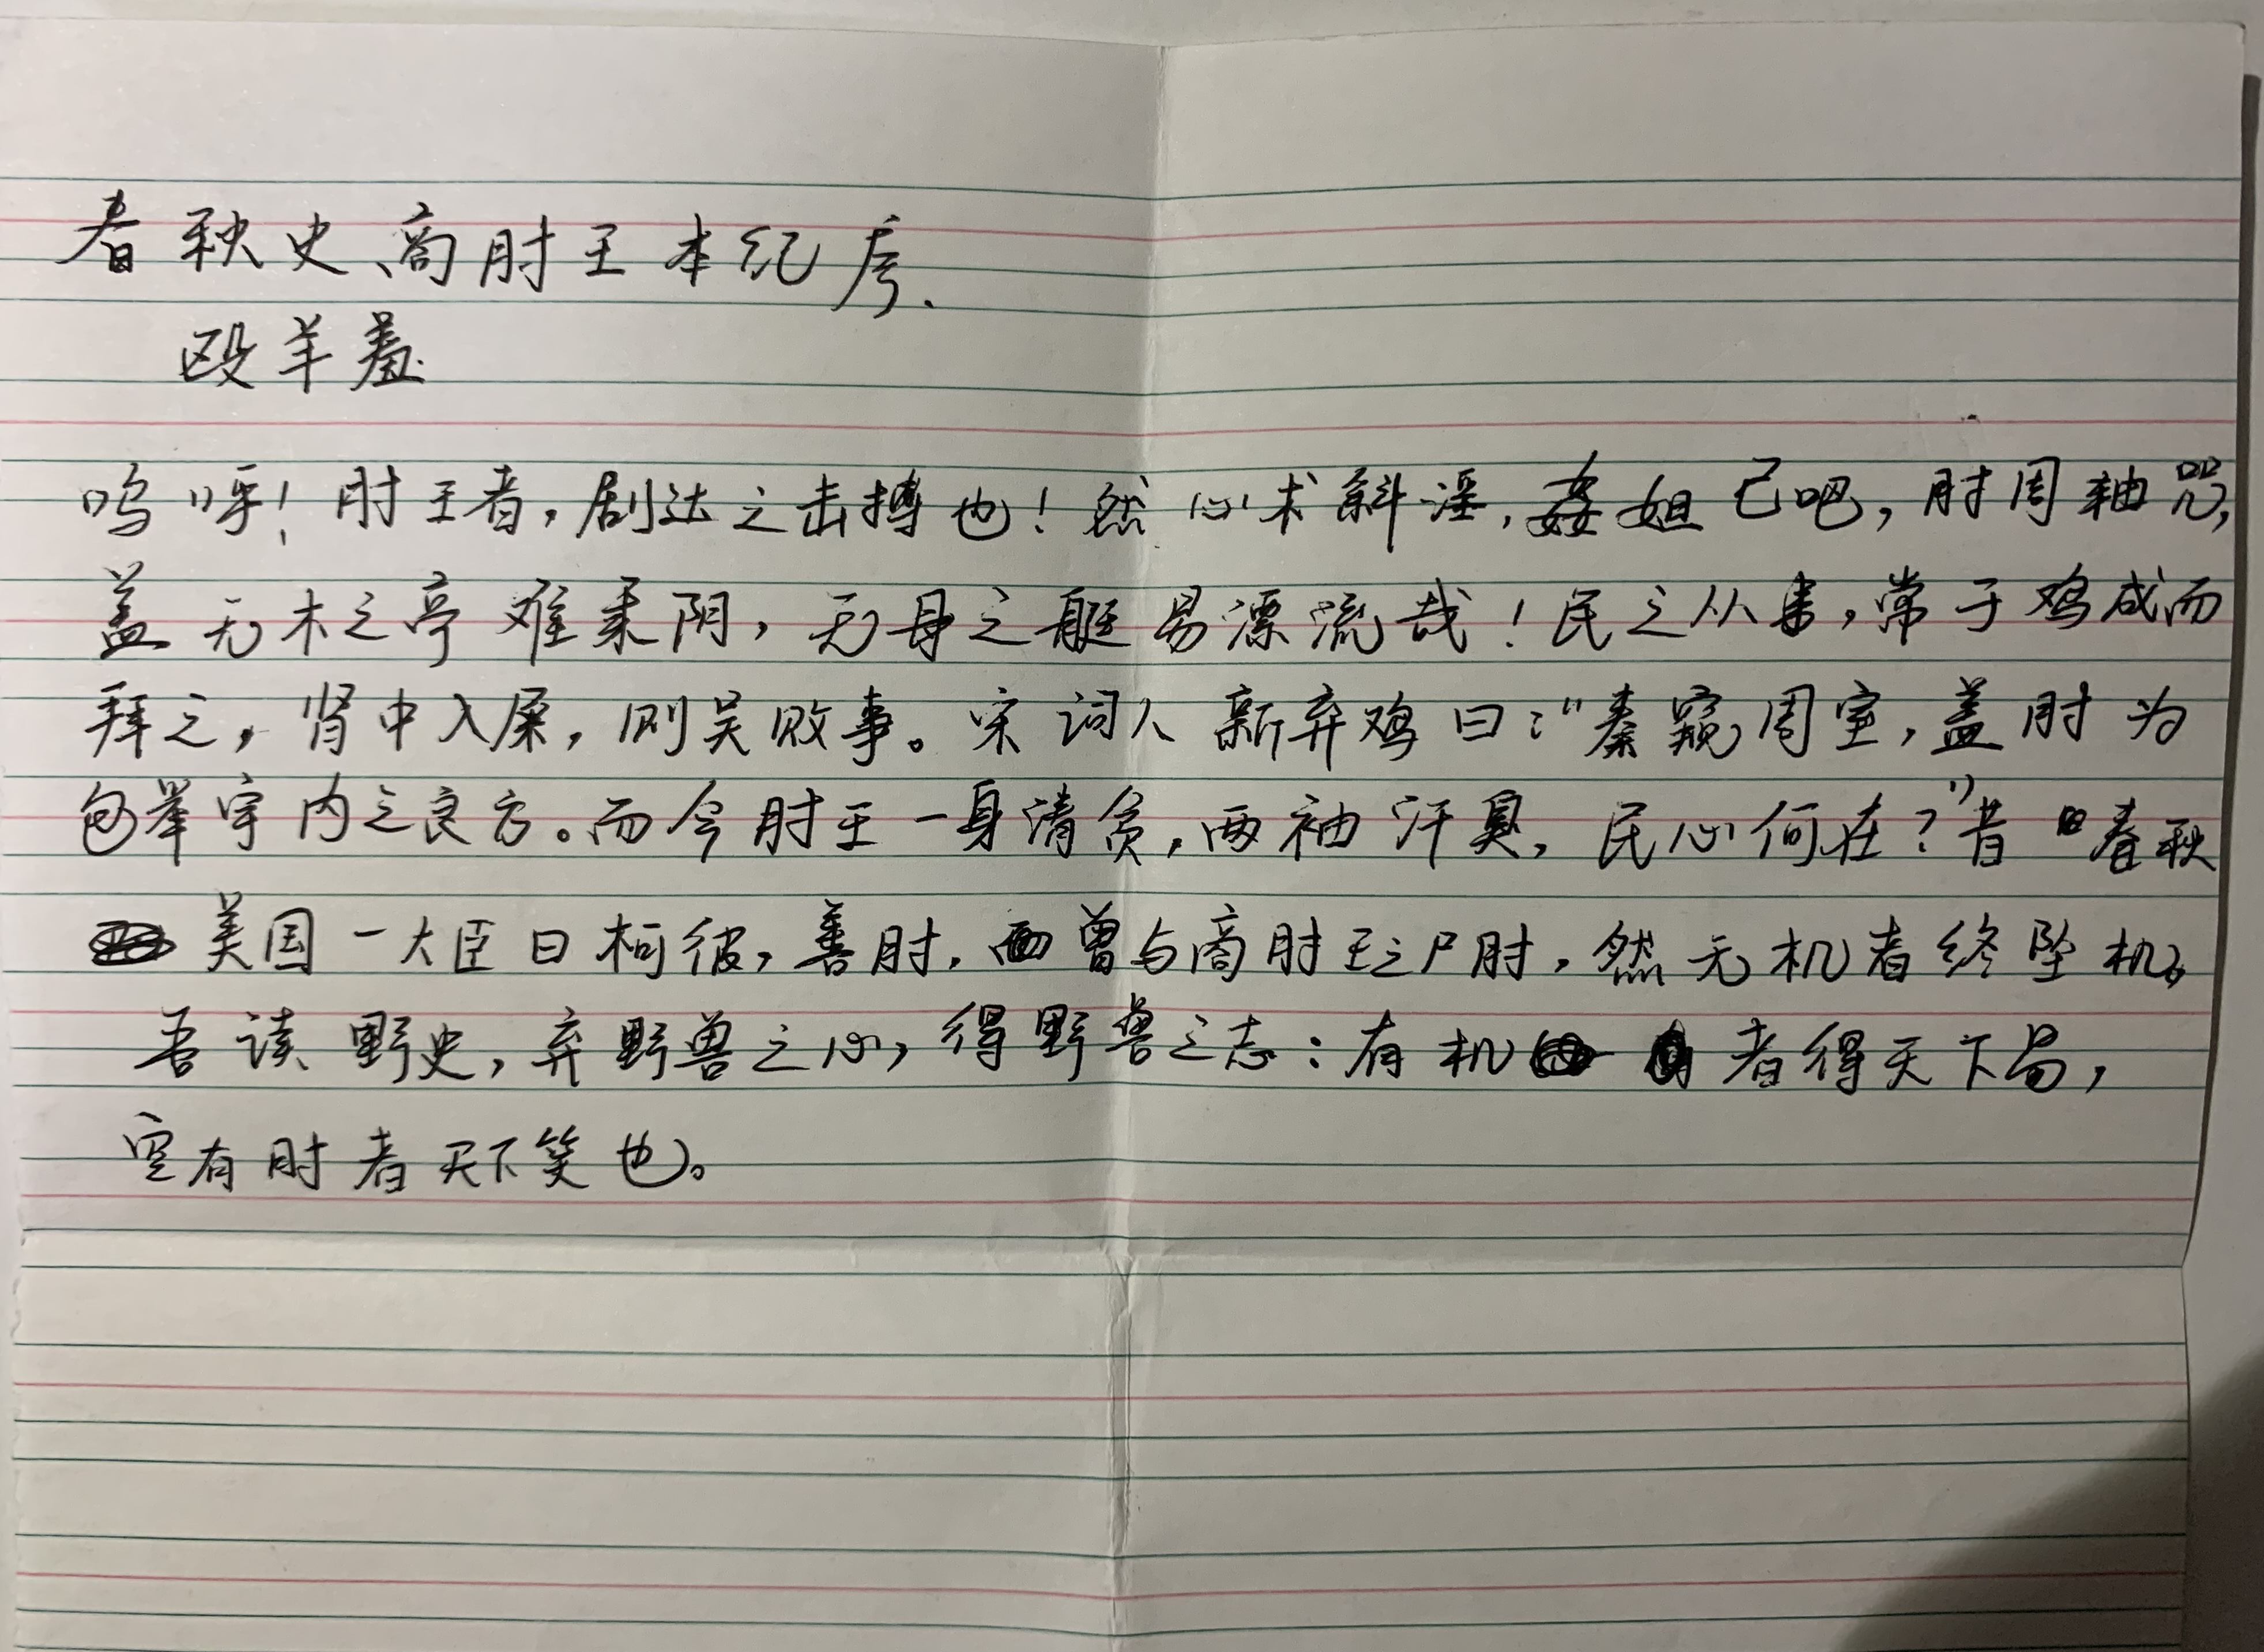 春秋史、商肘王本纪序、
殴羊羞
呜呼！肘王者，剧达之击搏也！然心术斜淫，姦妲己吧，肘周轴咒，
盖无木之亭难乘阴，无母之艇易漂流哉！民之从事，常于鸡成而
拜之，肾中入屎，则吴败事。宋词人新弃鸡曰：“秦窥周室，盖肘为
包举宇内之良方。而今肘王一身清贫，两袖汗臭，民心何在？”昔春秋
美国一大臣曰柯彼，善肘，曾与商肘王之尸肘，然无机者终坠机。
吾读野史，弃野兽之心，得野兽之志：有机者得天下局，
空有肘者天下笑也。